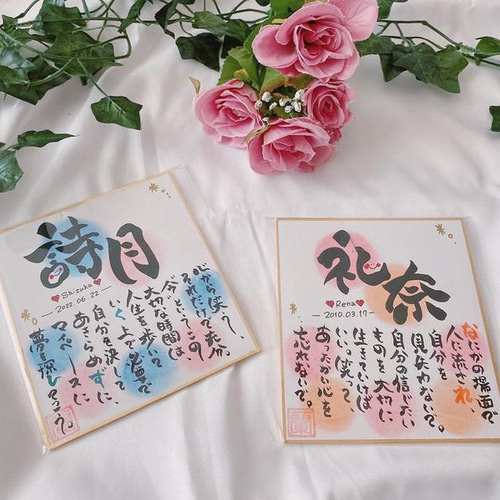 詩月
Shizuku
2022.06.22
心から笑う、
それだけで充
大切な時間は
人生を歩いて
いく上で必要で
自分を決して
あきらめずに
マイペースに
夢を探して
礼奈
Rena
2010.03.19
なにかの場面で
人に流され、
自分を
見失わないで。
自分の信じたい
ものを大切に
生きていけば
いい。笑って、
あったかい心を
忘れないで。